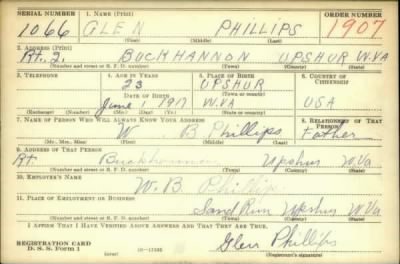 SERIAL NUMBER 1. NAME (Print) ORDER NUMBER
1066 GLEN PHILLIPS 1907
(First) (Middle) (Last)
2. ADDRESS (Print)
Rt. 2. BUCKHANNON UPSHUR W.VA
(Number and street or R. F. D. number) (Town) (County) (State)
3. TELEPHONE 4. AGE IN YEARS 5. PLACE OF BIRTH 6. COUNTRY OF CITIZENSHIP
23 UPSHUR
DATE OF BIRTH (Town or county)
June 1 1917 W.VA USA
(Exchange) (Number) (Mo.) (Day) (Yr.) (State or country)
7. NAME OF PERSON WHO WILL ALWAYS KNOW YOUR ADDRESS 8. RELATIONSHIP OF THAT PERSON
W B Phillips Father
(Mr., Mrs., Miss) (First) (Middle) (Last)
9. ADDRESS OF THAT PERSON
Rt. Buckhannon Upshur W.Va
(Number and street or R. F. D. number) (Town) (County) (State)
10. EMPLOYER'S NAME
W. B Phillips
11. PLACE OF EMPLOYMENT OR BUSINESS
Sand Run Upshur W.Va
(Number and street or R. F. D. number) (Town) (County) (State)
I AFFIRM THAT I HAVE VERIFIED ABOVE ANSWERS AND THAT THEY ARE TRUE.
REGISTRATION CARD
D. S. S. Form 1 Glen Phillips
(over) (Registrant's signature)